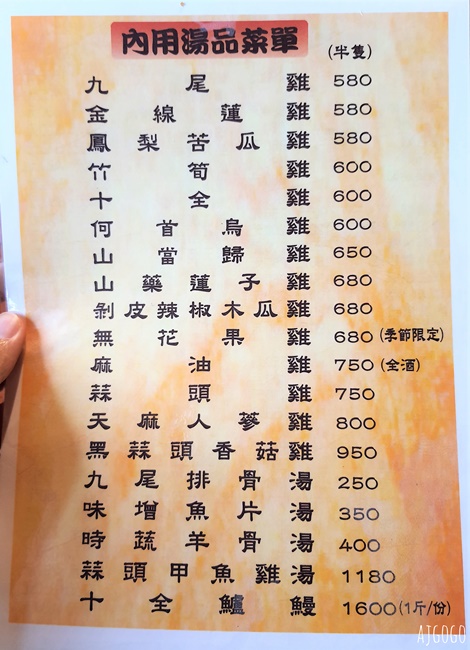 內用湯品菜單 (半隻)
九尾雞 580
金線蓮雞 580
鳳梨苦瓜雞 580
竹筍雞 600
十全雞 600
何首烏雞 600
山當歸雞 650
山藥蓮子雞 680
剝皮辣椒木瓜雞 680
無花果雞 680 (季節限定)
麻油雞 750 (全酒)
蒜頭雞 750
天麻人蔘雞 800
黑蒜頭香菇雞 950
九尾排骨湯 250
味增魚片湯 350
時蔬羊骨湯 400
蒜頭甲魚雞湯 1180
十全鱸鰻 1600(1斤/份)
AJGOGO